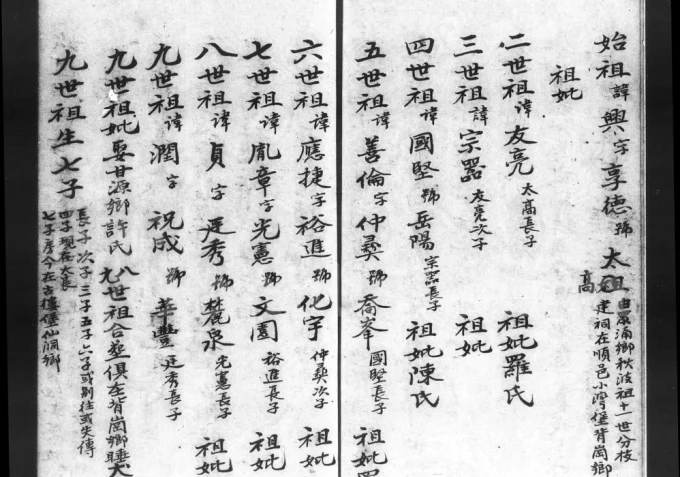 始祖諱興字享德號太高祖
由眾涌鄉秋波祖十一世分枝
建祠在順邑小灣堡背崗鄉
祖妣
二世祖諱友亮 太高長子 祖妣羅氏
三世祖諱宗器 友亮次子 祖妣
四世祖諱國堅號岳陽 宗器長子 祖妣陳氏
五世祖諱善倫字仲彝號喬峯 國堅長子 祖妣
六世祖諱應捷字裕進號化宇 仲彝次子 祖妣
七世祖諱胤章字光憲號文園 裕進長子 祖妣
八世祖諱貞字廷秀號麓泉 光憲長子 祖妣
九世祖諱潤字祝成號華豐 廷秀長子
九世祖妣娶甘源鄉許氏 八九世祖合塟俱在背崗鄉睡犬
九世祖生七子
長子次子三子五子六子或別徃或失傳
四子現在大長
七子房今在古樓堡仙洞鄉